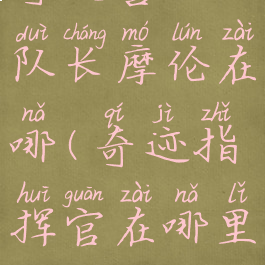 duì cháng mó lún zài
队长摩伦在
nǎ qí jì zhǐ
哪(奇迹指
huī guān zài nǎ lǐ
挥官在哪里